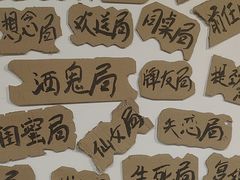 想念局
欢送局
同桌局
前任
酒鬼局
牌友局
闺蜜局
仙女局
失恋局
生死局